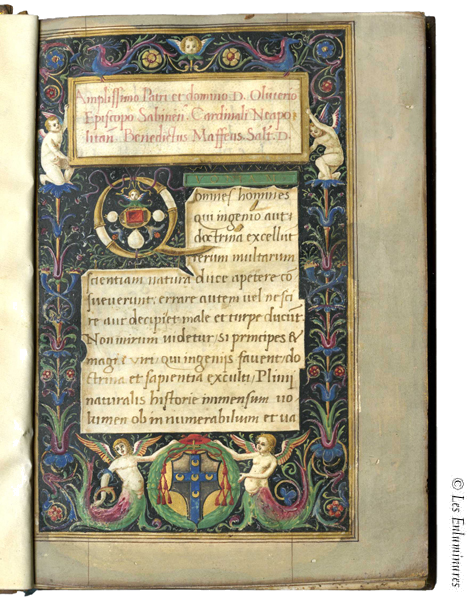 Amplissimo Patri et domino D. Oliuerio
Episcopo Sabinen̄. Cardinali Neapo
litan̄. Benedictus Maffeus Salt. D.
Q
omnes homines
qui ingenio aut
doctrina excellūt
rerum multarum
scientiam natura duce apetere cō
sueuerunt: errare autem uel nesci
re aut decipi et male et turpe ducūt.
Non mirum uidetur si principes &
magni uiri qui ingeniis fauent, do
ctrina et sapientia exculti Plinii
naturalis historie immensum uo
lumen ob innumerabilium et ua
© Les Enluminures